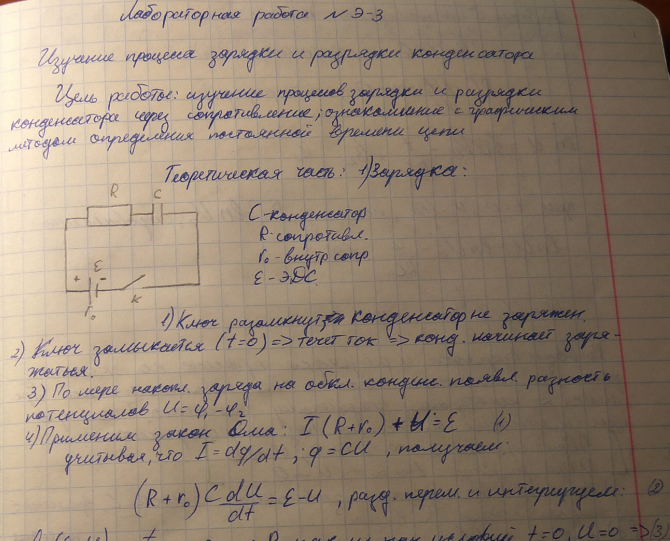 Лабораторная работа № Э-3
Изучание процеса зарядки и разрядки конденсатора
Цель работы: изучение процесов зарядки и разрядки
конденсатора через сопротивление; ознакомление с графическим
методом определения постоянной времени цепи
Теоретическая часть: 1) Зарядка:
R C
C - конденсатор
R - сопротивл.
r₀ - внутр сопр
ε - ЭДС
+ ε -
r₀ K
1) Ключ разомкнут конденсатор не заряжен.
2) Ключ замыкается (t=0) => течет ток => конд. начинает заря-
жаться.
3) По мере накопл. заряда на обкл. конденс. появл. разность
потенциалов U = φ₁ - φ₂
4) Применим закон Ома: I (R + r₀) + U = ε (1)
учитывая, что I = dq/dt, ; q = CU, получаем:
(R + r₀) C dU/dt = ε - U, разд. перем. и интегрируем: (2)
t=0, U=0 => (3